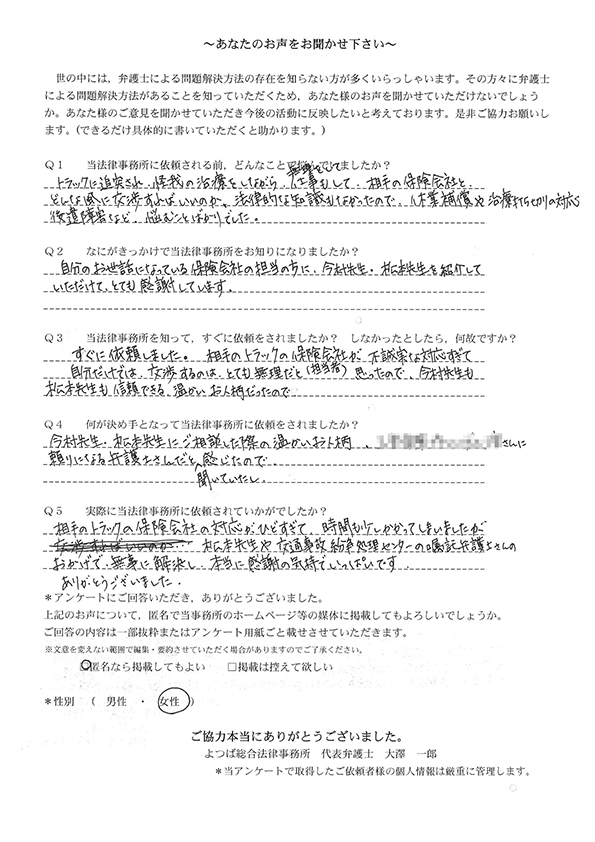 ～あなたのお声をお聞かせ下さい～
世の中には，弁護士による問題解決方法の存在を知らない方が多くいらっしゃいます。その方々に弁護士
による問題解決方法があることを知っていただくため，あなた様のお声を聞かせていただけないでしょう
か。あなた様のご意見を聞かせていただき今後の活動に反映したいと考えております。是非ご協力お願いし
ます。(できるだけ具体的に書いていただくと助かります。)
Ｑ１　当法律事務所に依頼される前，どんなことで悩んでいましたか？
トラックに追突され、怪我の治療をしながら、仕事もして、相手の保険会社と、
どんな風に交渉すればいいのか。法律的な知識もなかったので、休業補償や治療打ち切りの対応
後遺障害など、悩むことばかりでした。
Ｑ２　なにがきっかけで当法律事務所をお知りになりましたか？
自分のお世話になっている保険会社の担当の方に、今村先生・松本先生を紹介して
いただけて、とても感謝しています。
Ｑ３　当法律事務所を知って，すぐに依頼をされましたか？　しなかったとしたら，何故ですか？
すぐに依頼しました。相手のトラックの保険会社が、不誠実な対応すぎて
自分だけでは、交渉するのは、とても無理だと(担当者)思ったので、今村先生も
松本先生も信頼できる、温かいお人柄だったので
Ｑ４　何が決め手となって当法律事務所に依頼をされましたか？
今村先生・松本先生にご相談した際の温かいお人柄、
さんに
頼りになる弁護士さんだと感じたので、
聞いていたし、
Ｑ５　実際に当法律事務所に依頼されていかがでしたか？
相手のトラックの保険会社の対応がひどすぎて、時間も少しかかってしまいましたが
松本先生や交通事故紛争処理センターの嘱託弁護士さんの
おかげで、無事に解決し、本当に感謝の気持でいっぱいです
ありがとうございました。
＊アンケートにご回答いただき，ありがとうございました。
上記のお声について，匿名で当事務所のホームページ等の媒体に掲載してもよろしいでしょうか。
ご回答の内容は一部抜粋またはアンケート用紙ごと載せさせていただきます。
※文意を変えない範囲で編集・要約させていただく場合がありますのでご了承ください。
□匿名なら掲載してもよい　□掲載は控えて欲しい
＊性別　（　男性　・　女性　）
ご協力本当にありがとうございました。
よつば総合法律事務所　代表弁護士　大澤　一郎
＊当アンケートで取得したご依頼者様の個人情報は厳重に管理します。